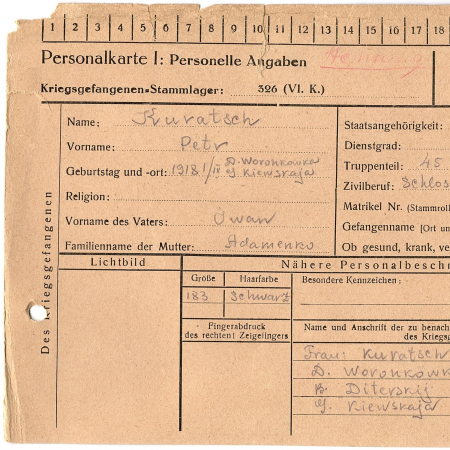 1 2 3 4 5 6 7 8 9 10 11 12 13 14 15 16 17 18
Personalkarte I: Personelle Angaben
Kriegsgefangenen-Stammlager: 326 (VI. K.)
Des Kriegsgefangenen
Name: Kuratsch
Vorname: Petr
Geburtstag und -ort: 1918 1/IX D. Woronkowka
G. Kiewskaja
Religion:
Vorname des Vaters: Iwan
Familienname der Mutter: Adamenko
Staatsangehörigkeit:
Dienstgrad:
Truppenteil: 45
Zivilberuf: Schlos
Matrikel Nr. (Stammroll
Gefangennahme (Ort un
Ob gesund, krank, ve
Lichtbild
Nähere Personalbeschr
Größe Haarfarbe
183 Schwarz
Besondere Kennzeichen:
Fingerabdruck
des rechten! Zeigefingers
Name und Anschrift der zu benach
des Kriegs
Frau: Kuratsch
D. Woronkowk
R. Diterskij
G. Kiewskaja